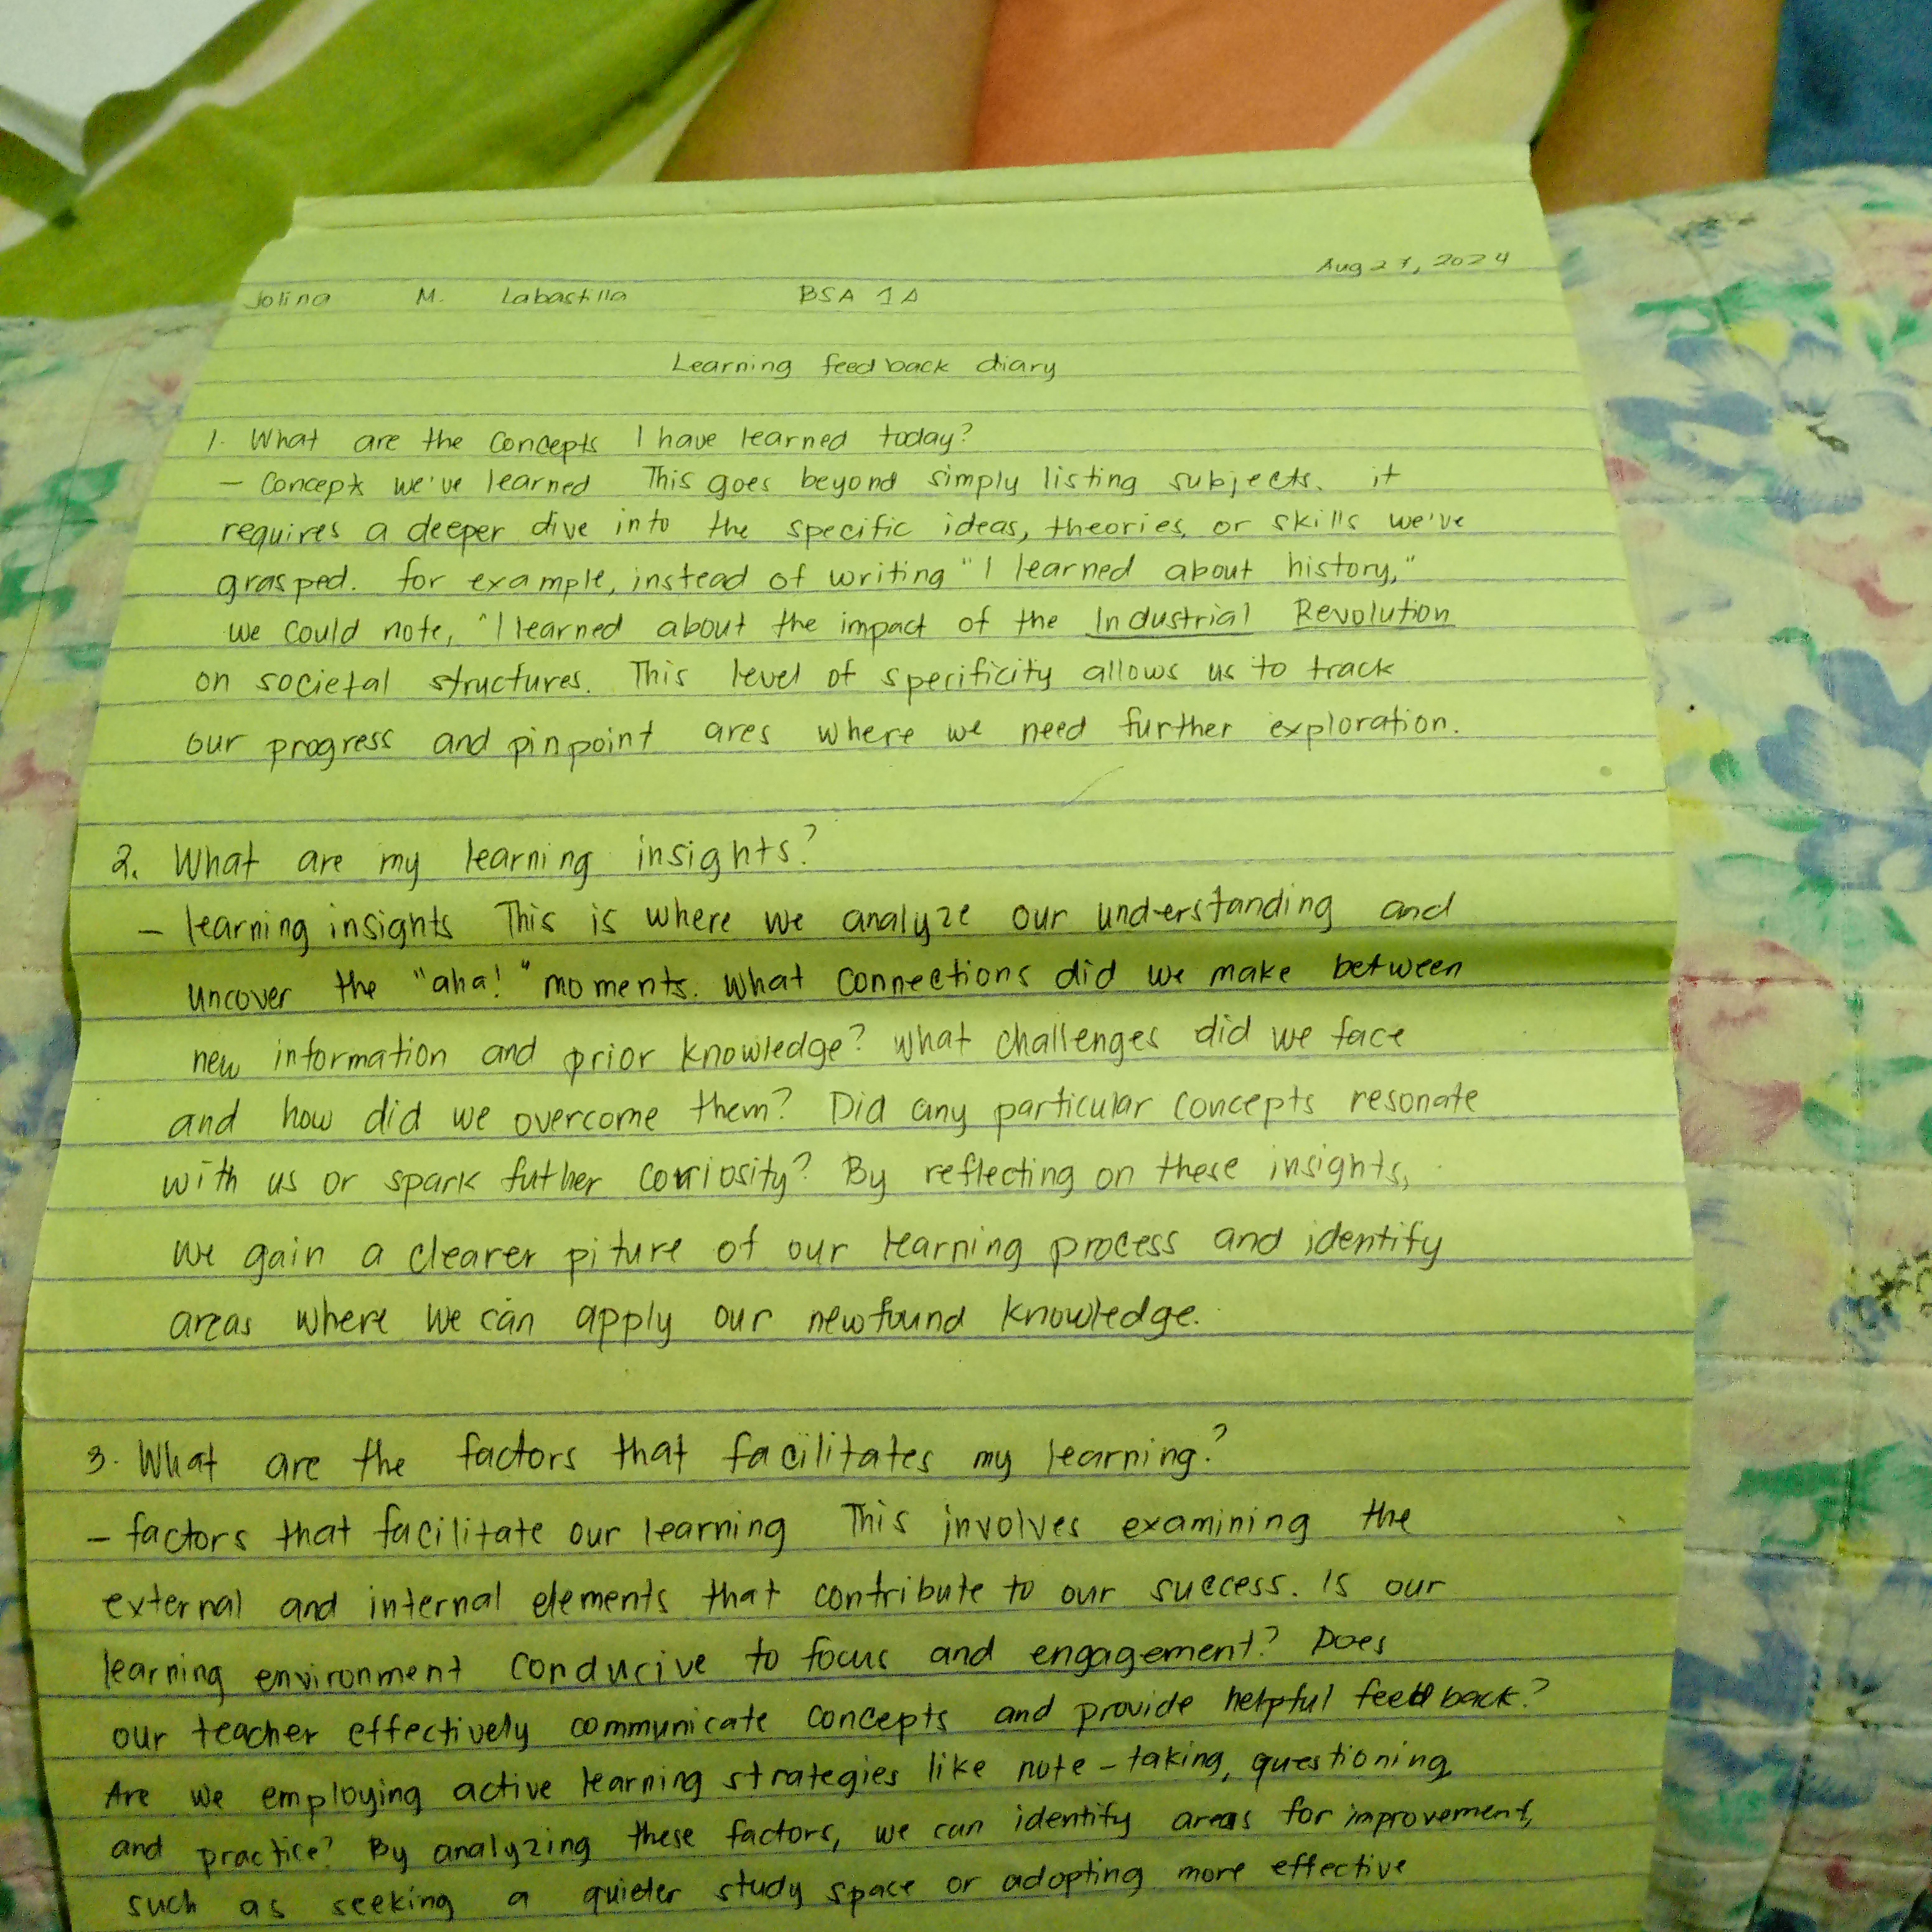 Aug 27, 2024
Jolina M. Labastilla BSA 1A
Learning feedback diary
1. What are the concepts I have learned today?
- Concept we've learned This goes beyond simply listing subjects. it
requires a deeper dive into the specific ideas, theories, or skills we've
grasped. for example, instead of writing "I learned about history,"
we could note, "I learned about the impact of the Industrial Revolution
on societal structures. This level of specificity allows us to track
our progress and pinpoint ares where we need further exploration.
2. What are my learning insights?
- learning insights This is where we analyze our understanding and
uncover the "aha!" moments. What connections did we make between
new information and prior knowledge? What challenges did we face
and how did we overcome them? Did any particular concepts resonate
with us or spark futher coriosity? By reflecting on these insights,
we gain a clearer piture of our learning process and identify
areas where we can apply our newfound knowledge.
3. What are the factors that facilitates my learning?
- factors that facilitate our learning This involves examining the
external and internal elements that contribute to our success. Is our
learning environment conducive to focus and engagement? Does
our teacher effectively communicate concepts and provide helpful feedback?
Are we employing active learning strategies like note-taking, questioning,
and practice? By analyzing these factors, we can identify areas for improvement,
such as seeking a quieter study space or adopting more effective